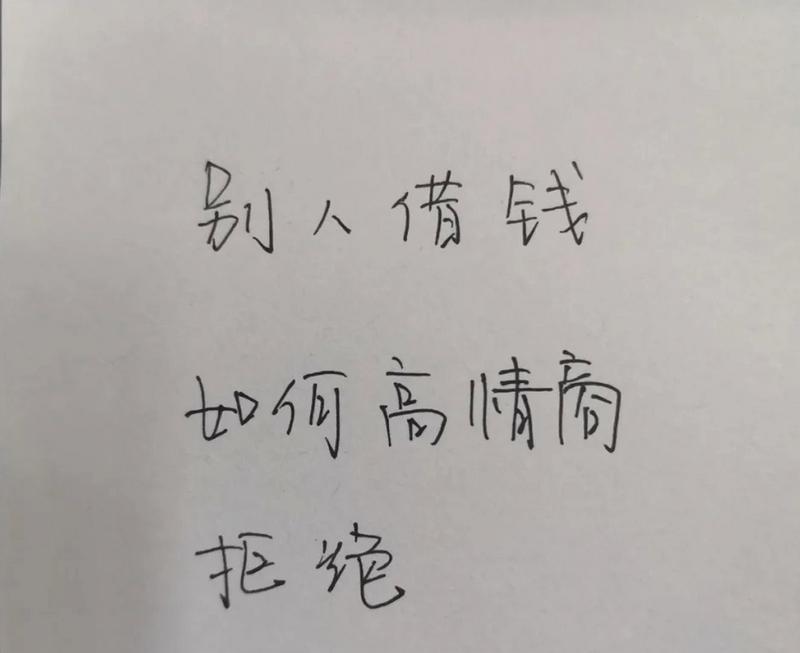 别人借钱
如何高情商
拒绝